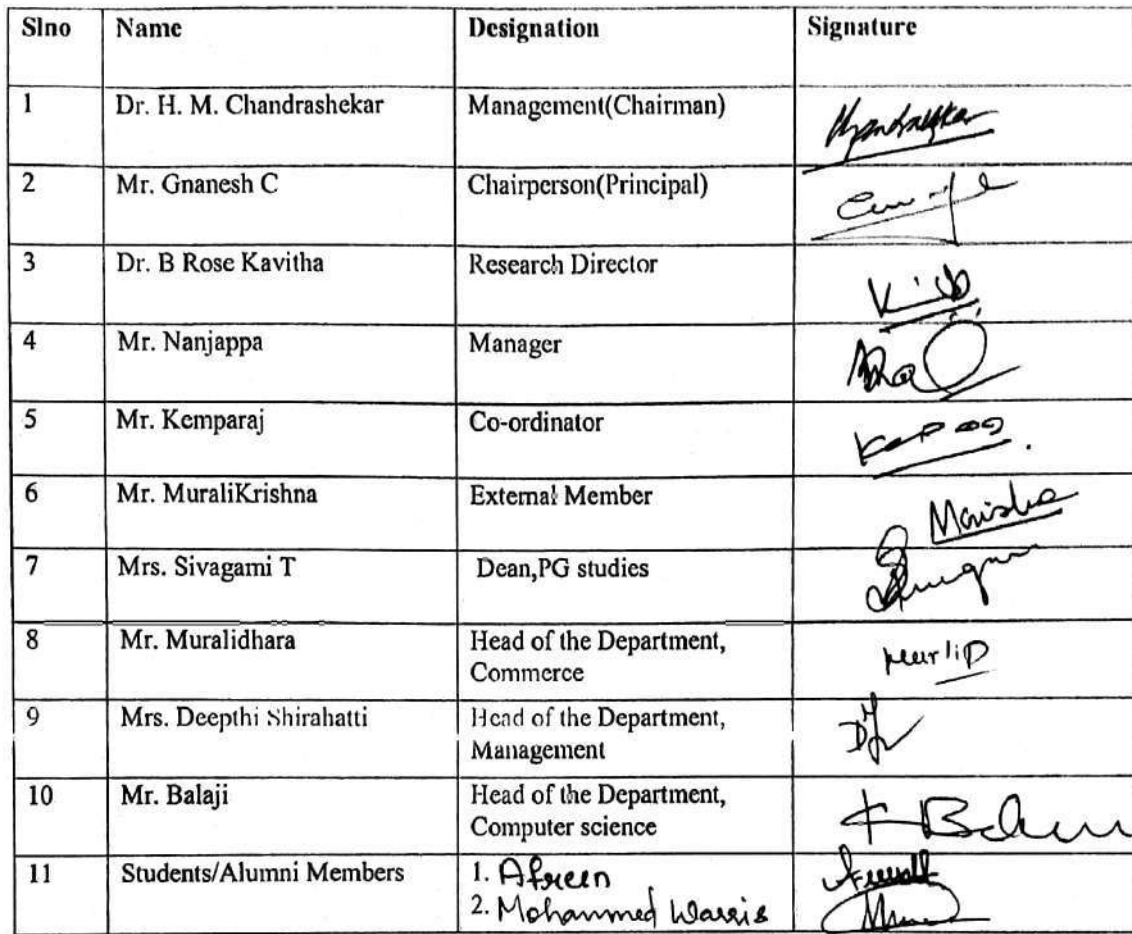 Slno Name Designation Signature
1 Dr. H. M. Chandrashekar Management(Chairman)
2 Mr. Gnanesh C Chairperson(Principal)
3 Dr. B Rose Kavitha Research Director
4 Mr. Nanjappa Manager
5 Mr. Kemparaj Co-ordinator
6 Mr. MuraliKrishna External Member
7 Mrs. Sivagami T Dean,PG studies
8 Mr. Muralidhara Head of the Department,
Commerce
9 Mrs. Deepthi Shirahatti Head of the Department,
Management
10 Mr. Balaji Head of the Department,
Computer science
11 Students/Alumni Members 1. Afreen
2. Mohammed Warris